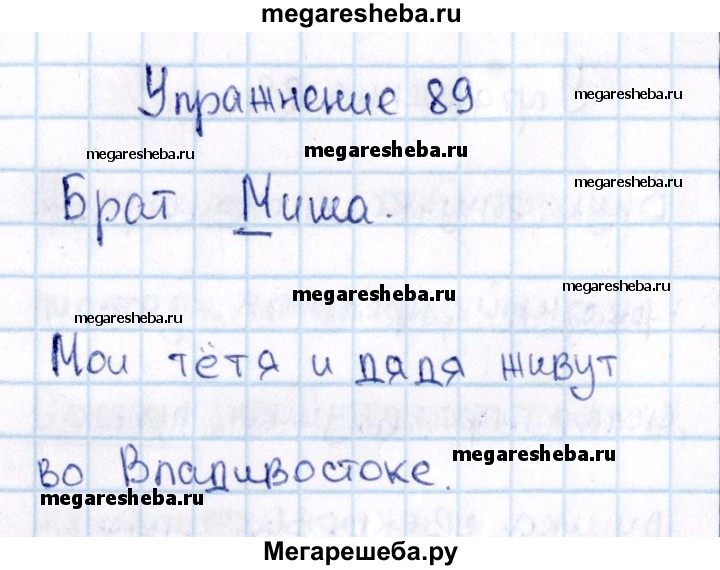 megaresheba.ru
Упражнение 89
megaresheba.ru
megaresheba.ru
megaresheba.ru
Брат Миша.
megaresheba.ru
megaresheba.ru
megaresheba.ru
megaresheba.ru
Мои тётя и дядя живут
во Владивостоке.
megaresheba.ru
megaresheba.ru
Мегарешеба.ру